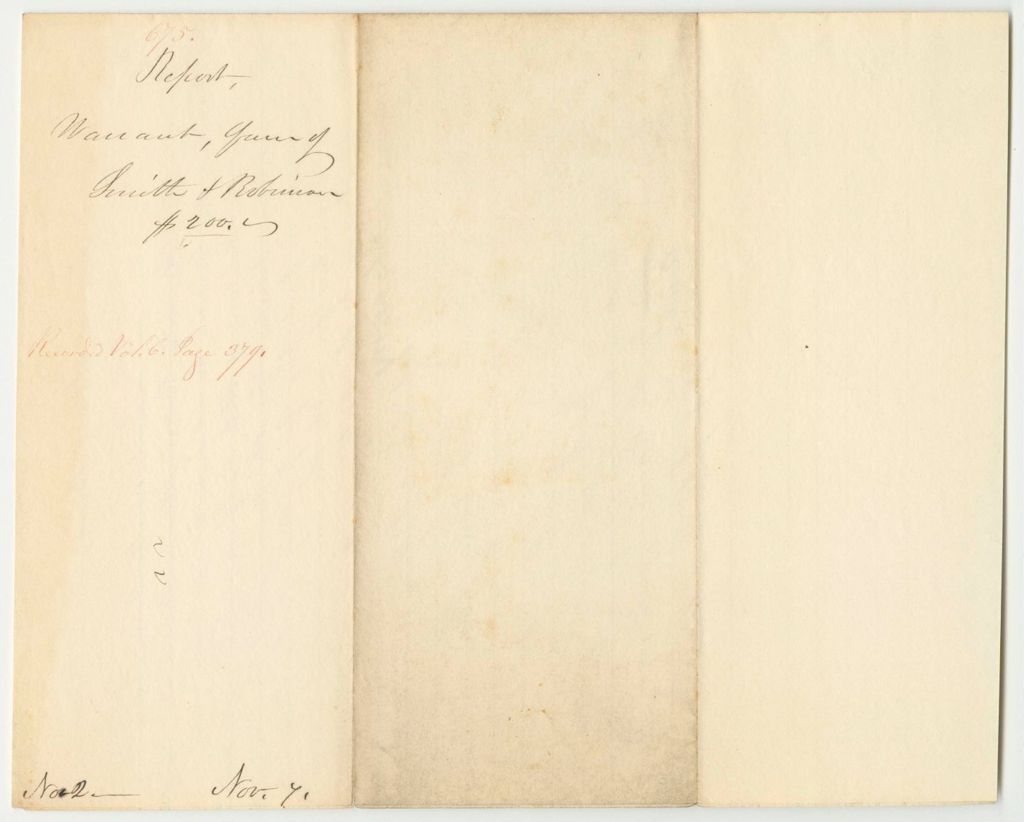 675.
Report,
Warrant, favr of
Smith & Robinson
$200.
Recorded Vol. 6. Page 379.
No 2.
Nov. 7.